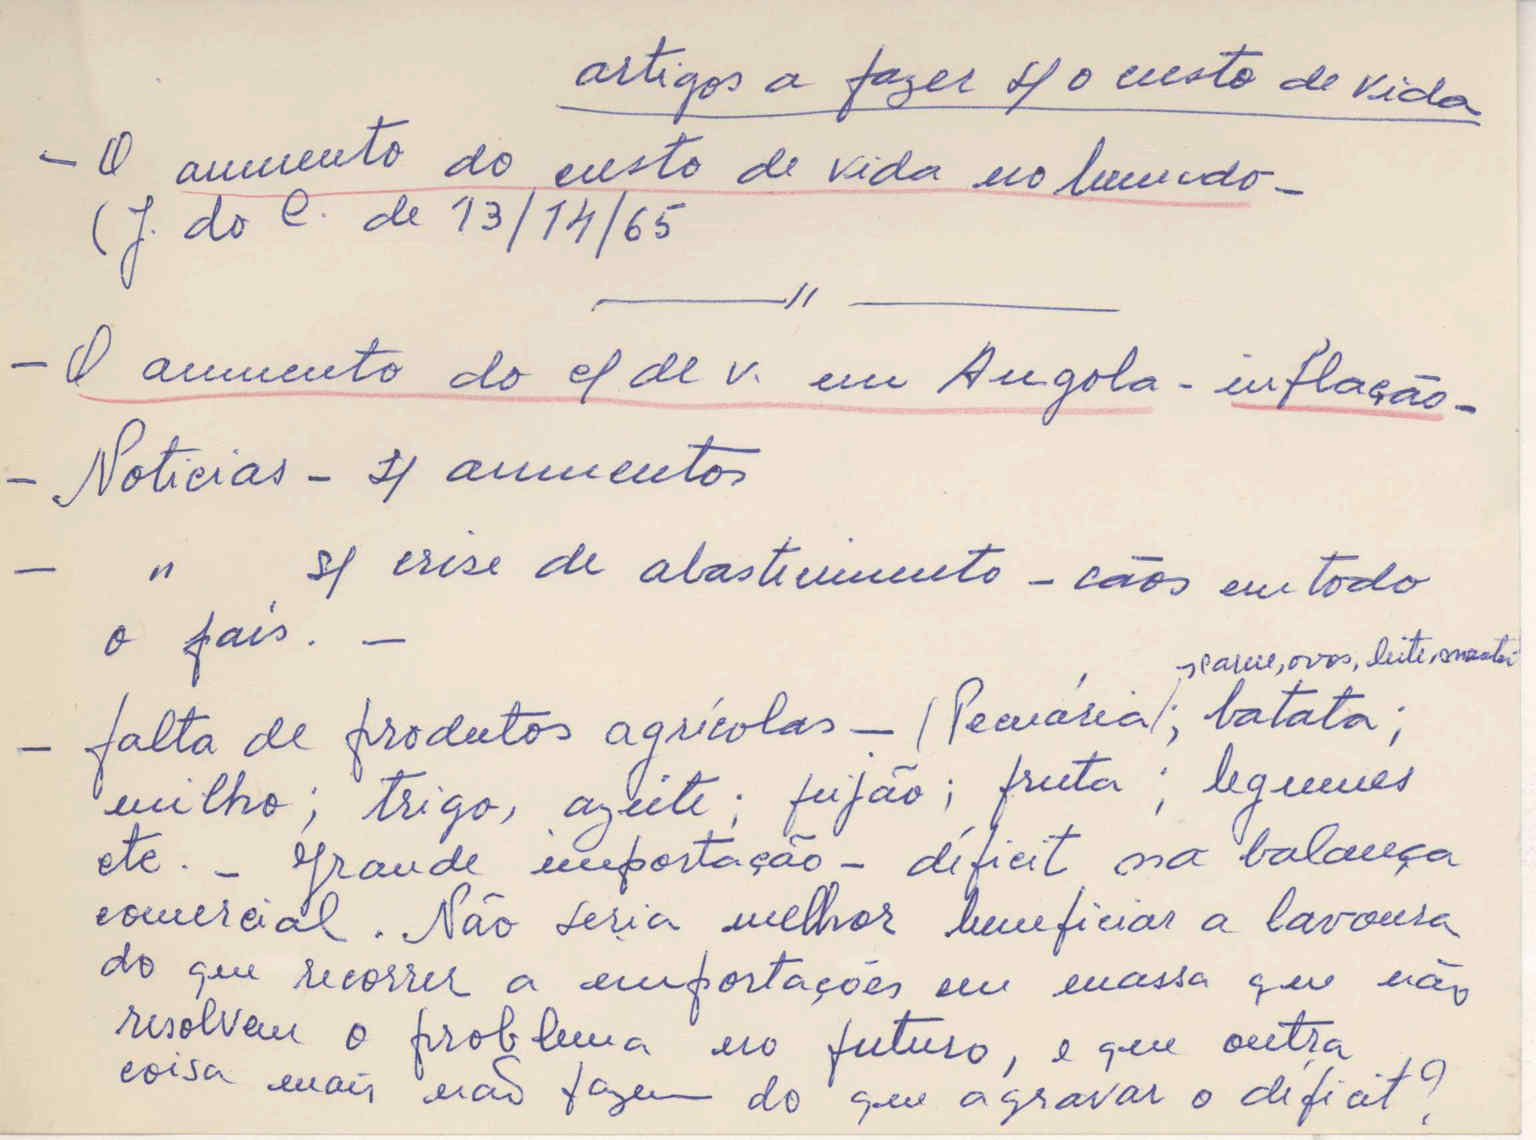 artigos a fazer s/ o custo de vida
- O aumento do custo de vida no mundo -
(J. do C. de 13/14/65
——— // ———
- O aumento do c/ de v. em Angola - inflação -
- Noticias - s/ aumentos
- " s/ crise de abastecimento - cãos em todo
o país. -
carne, ovos, leite,
- falta de produtos agrícolas - (Pecuária); batata;
milho; trigo, azeite; feijão; fruta; legumes
etc. - Grande importação - déficit na balança
comercial. Não seria melhor beneficiar a lavoura
do que recorrer a importações em massa que não
resolvem o problema no futuro, e que outra
coisa mais não fazem do que agravar o déficit?